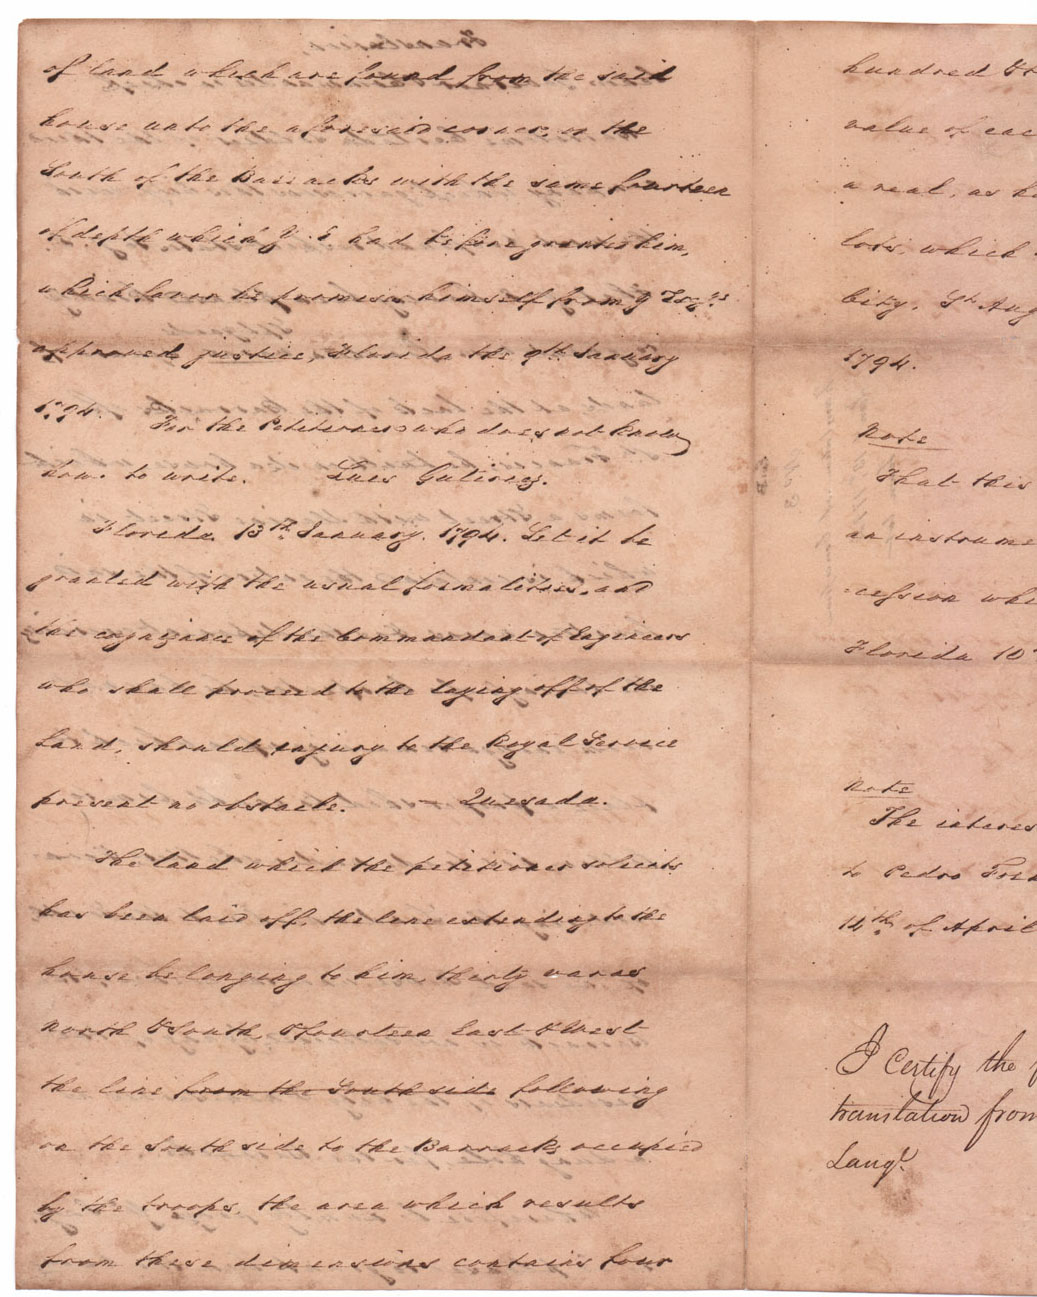 of land which are found from the said
house unto the aforesaid corner, on the
South of the Barracks with the same fourteen
of depth which Y. E. had before granted him,
which favor he promises himself from y.
approved justice. Florida the 9th January
1794. For the Petitioner who does not know
how to write. Luis Gutirez.
Florida 13th January. 1794. Let it be
granted with the usual formalities, and
the cognizance of the Commandant of Engineers
who shall proceed to the laying off of the
Land, should injury to the Royal Service
present no obstacle. Quesada.
The land which the petitioner solicits
has been laid off, the line extending to the
house belonging to him, thirty varas
North & South, & fourteen East & West
the line from the South side following
on the South side to the Barracks occupied
by the troops. the area which results
from these dimensions contains four
hundred &
value of eac
a real, as h
lots, which
City. St. Aug
1794.
Note
That this
an instrume
cession whi
Florida 10
Note
The interes
to Pedro
14th of April
I Certify the
translation from
Lange.